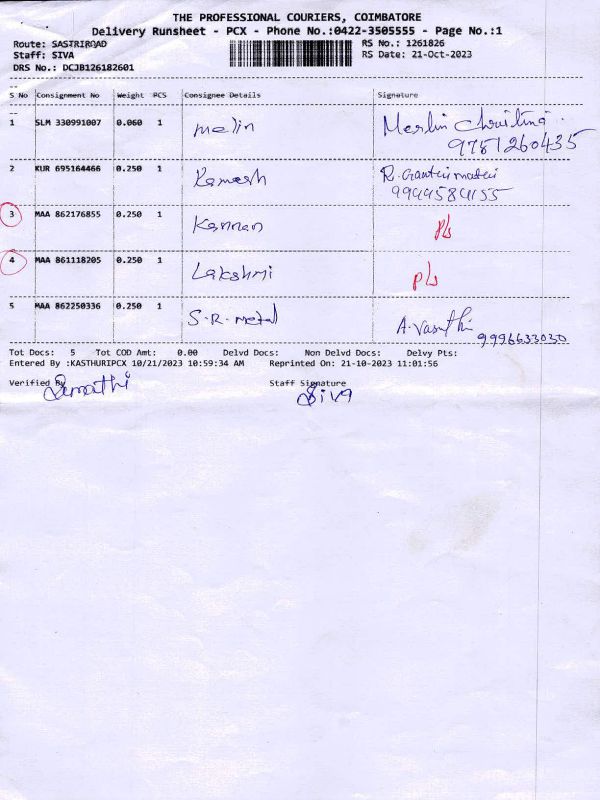 THE PROFESSIONAL COURIERS, COIMBATORE
Delivery Runsheet - PCX - Phone No.:0422-3505555 - Page No.:1
Route: SASTRIROAD RS No.: 1261826
Staff: SIVA RS Date: 21-Oct-2023
DRS No.: DCJB126182601
S No Consignment No Weight PCS Consignee Details Signature
1 SLM 330991007 0.060 1 melin Merlin Christina
9781260435
2 KUR 695164466 0.250 1 Kamesh R.
9994584155
3 MAA 862176855 0.250 1 Kannan pls
4 MAA 861118205 0.250 1 Lakshmi pls
5 MAA 862250336 0.250 1 S.R. metal A. Vasuthi
9996633030
Tot Docs: 5 Tot COD Amt: 0.00 Delvd Docs: Non Delvd Docs: Delvy Pts:
Entered By :KASTHURIPCX 10/21/2023 10:59:34 AM Reprinted On: 21-10-2023 11:01:56
Verified By Staff Signature
Siva